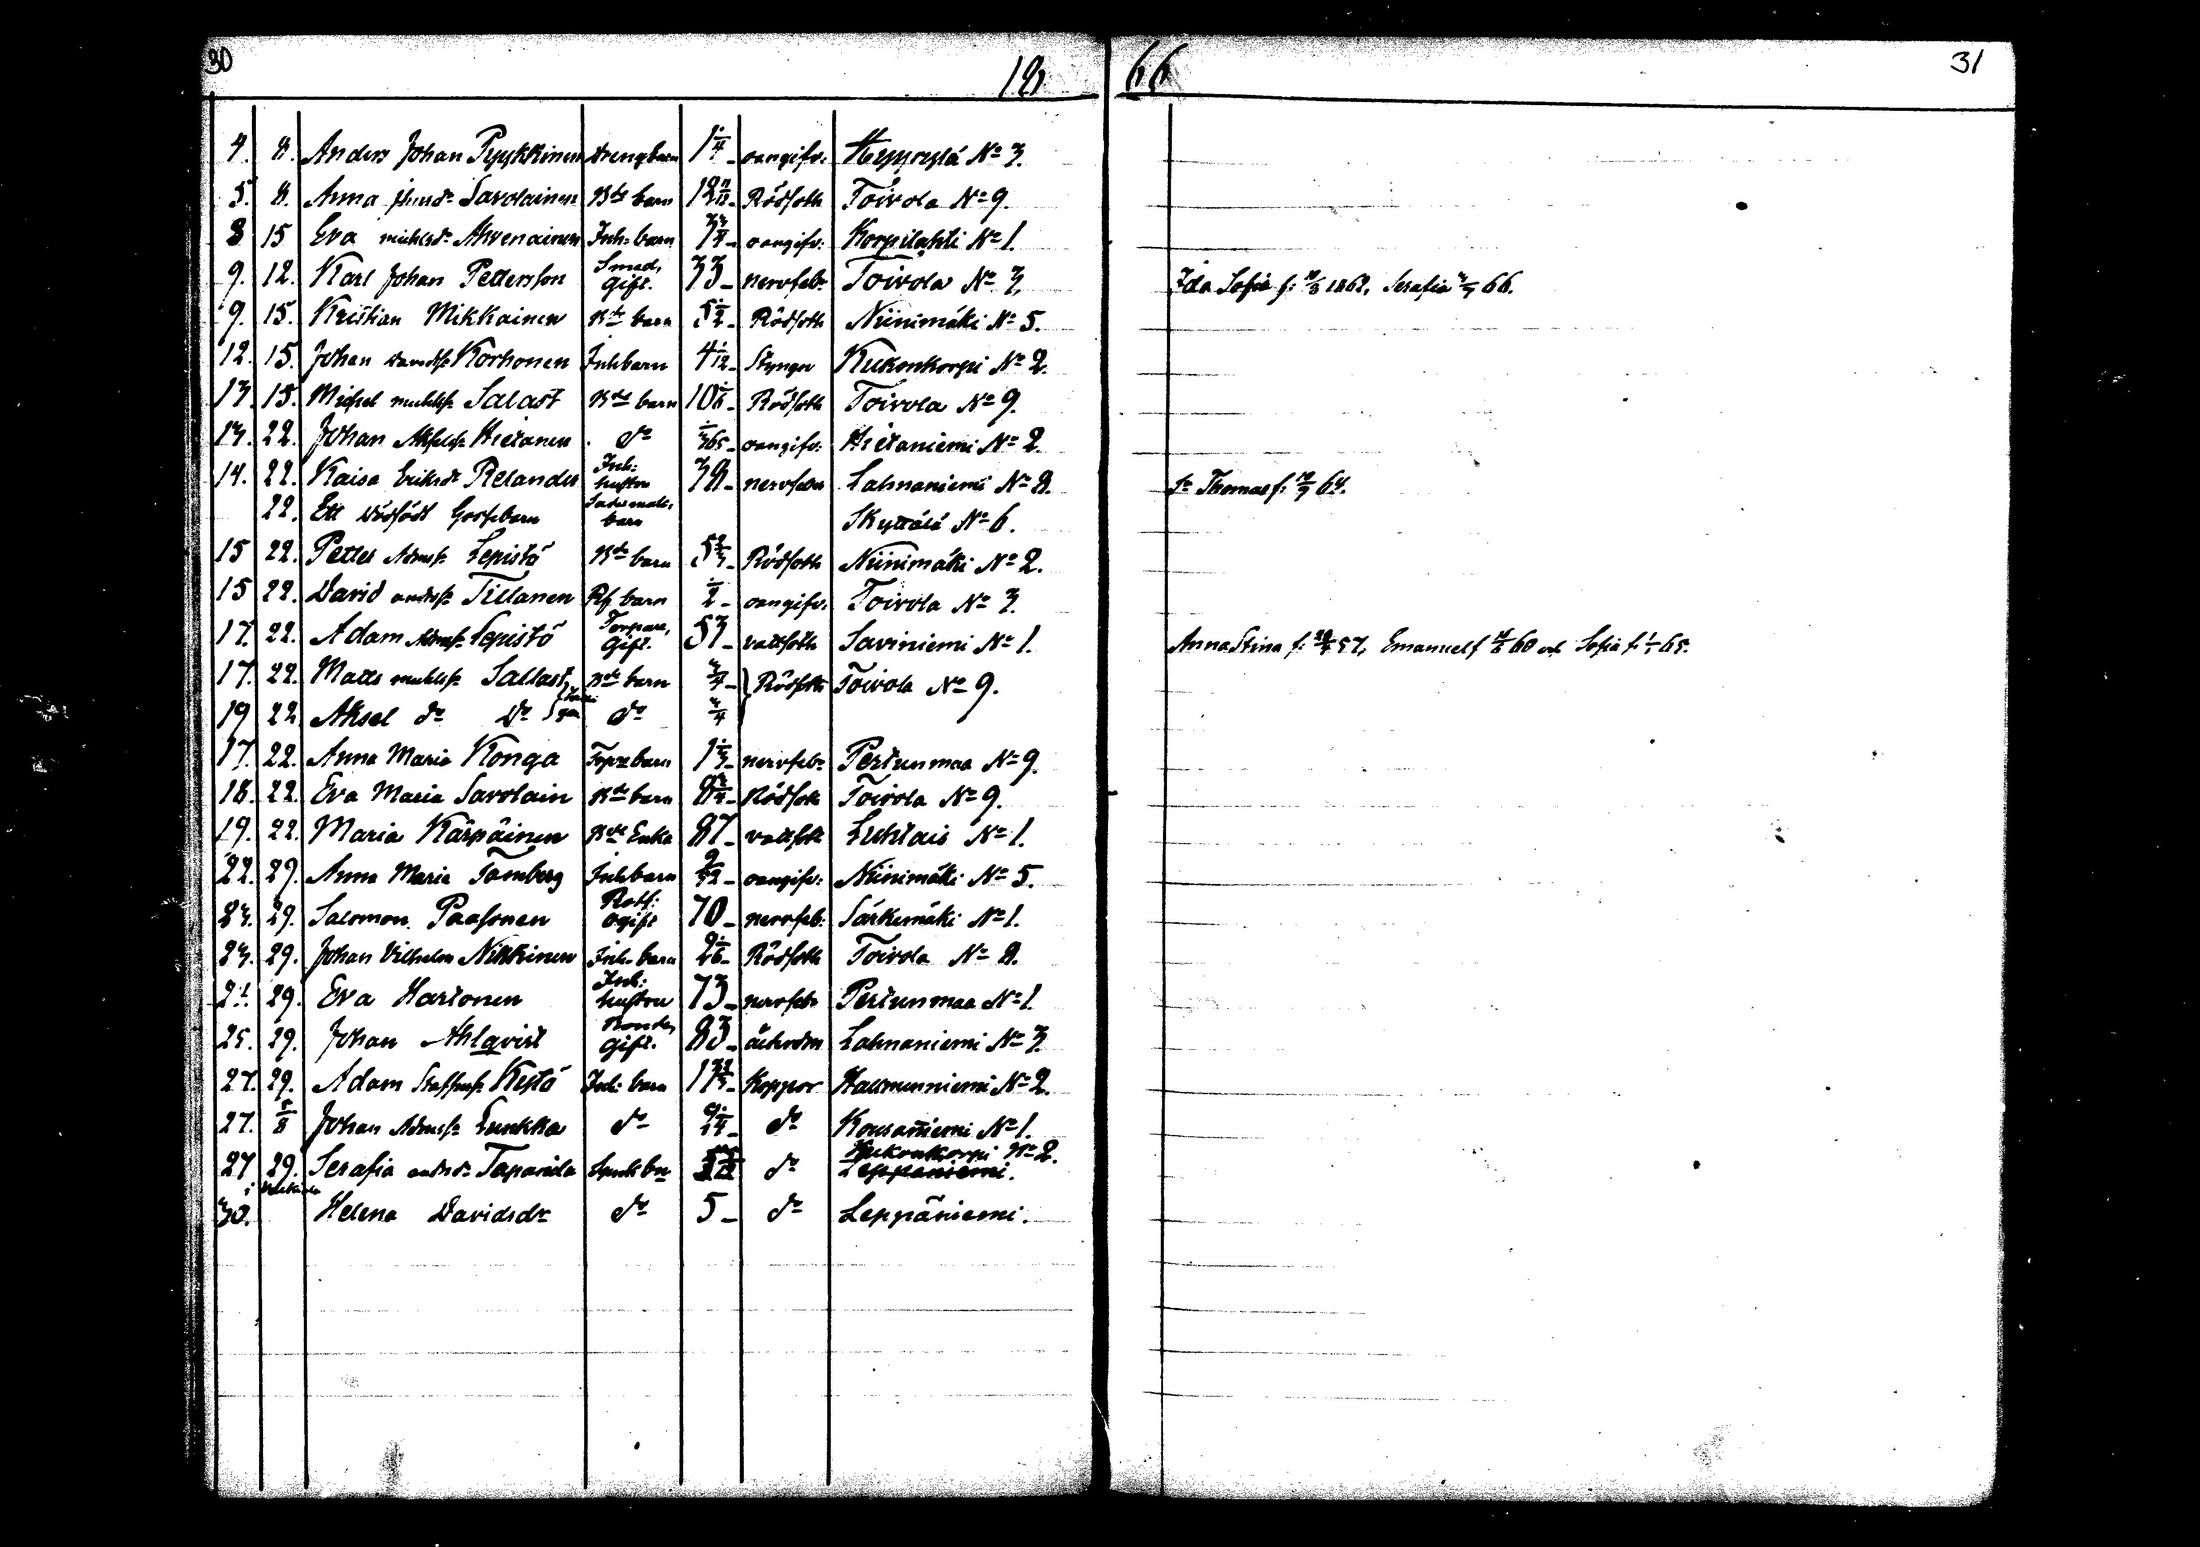 30
18
66
31
4. 8. Anders Johan Pyykkinen Drengbarn 1 1/4 oangifv: Heyrylä No 3.
5. 8. Anna Savolainen Bde barn 12 11/12 Rödsoth Toivola No 9.
8 15 Eva michelsdr Ahvenainen Inh: barn 3 3/4 oangifv: Korpilahti No 1.
9. 12. Karl Johan Pettersson Smed, Gift. 33 nervfeb: Toivola No 3.
Ida Sofia f: 1862, Serafia 66.
9. 15. Kristian Mikkainen Bde barn 5 1/2 Rödsoth Niinimäki No 5.
12. 15. Johan Davidss: Korhonen Inhbarn 4 1/12 Styngn Kukonkorpi No 2.
13. 15. Michel michelss: Salast Bde barn 10 1/6 Rödsoth Toivola No 9.
13. 22. Johan Hietanen do oangifv: Hietaniemi No 2.
14. 22. Kaisa Eriksdr Relander Inh: hustru 38 nervfeber Lahnaniemi No 8.
Thomas f: 12/9 64.
22. Ett dödfödt Gossebarn barn Skyttälä No 6.
15 22. Petter Adamss: Lepistö Bde barn 5 2/3 Rödsoth Niinimäki No 2.
15 22. David andrss: Tillanen barn 1/2 oangifv: Toivola No 3.
17. 22. Adam Adamss: Lepistö Torpare, Gift. 57 vattsoth Saviniemi No 1.
Anna Stina f: 57, Emanuel f 60 och Sofia f. 65.
17. 22. Matts michelss: Sallast, Bde barn 3/4 Rödsoth Toivola No 9.
19 22 Aksel do Do do 3/4
17. 22. Anna Maria Konga Torp:barn 1 1/3 nervfeb: Pertunmaa No 9.
18. 22. Eva Maria Savolain Bde barn 8 3/4 Rödsoth Toivola No 9.
19. 22. Maria Kärpäinen Bde Enka 87 vattsoth Luhtais No 1.
22. 29. Anna Maria Tamberg Inhbarn 2/52 oangifv: Niinimäki No 5.
23. 29. Salomon Paasonen Roth: ogift 70 nervfeb: Särkemäki No 1.
23. 29. Johan Vilhelm Nikkinen Inh. barn 2 1/6 Rödsoth Toivola No 8.
24. 29. Eva Hartonen Inh: hustru 73 nervfeb Pertunmaa No 1.
25. 29. Johan Ahlqvist Bonde, Gift. 83 ålderdom Lahnaniemi No 3.
27. 29. Adam Staffanss: Kestö Inh: barn 1 Koppor No 2.
27. 5/8 Johan Adamss: Lunkka do do No 1.
27 29. Serafia andrsdr Tapanila do Kukonkorpi No 2.
Leppäniemi.
30. Helena Davidsdr do 5 do Leppäniemi.